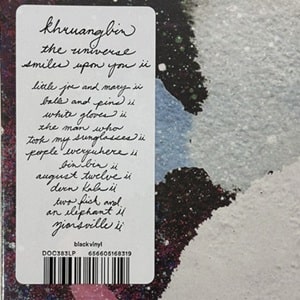 khruangbin
the universe
smiles upon you ii
little joe and mary ii
balls and pins ii
white gloves ii
the man who
took my sunglasses ii
people everywhere ii
bin bin ii
august twelve ii
dern kala ii
two fish and
an elephant ii
zionsville ii
black vinyl
DOC383LP 656605168319